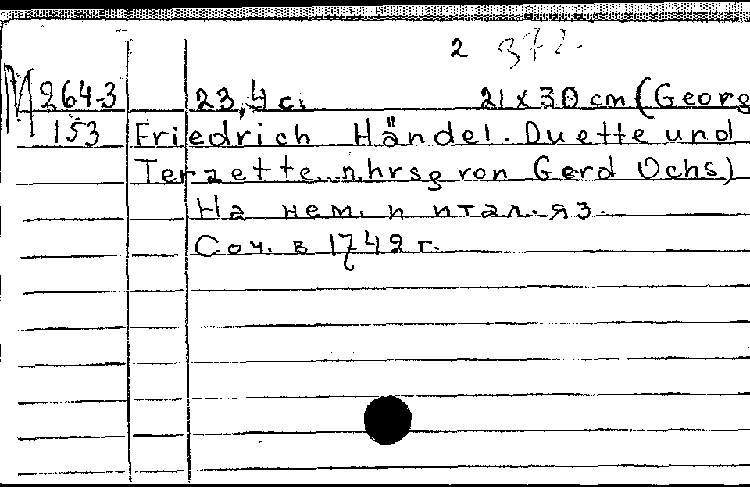 2 372.
М 264-3 23,4 с. 21 x 30 cm (Georg
153 Friedrich Händel. Duette und
Terzette. n. hrsg von Gerd Ochs)
На нем. и итал. яз.
Соч. в 1742 г.